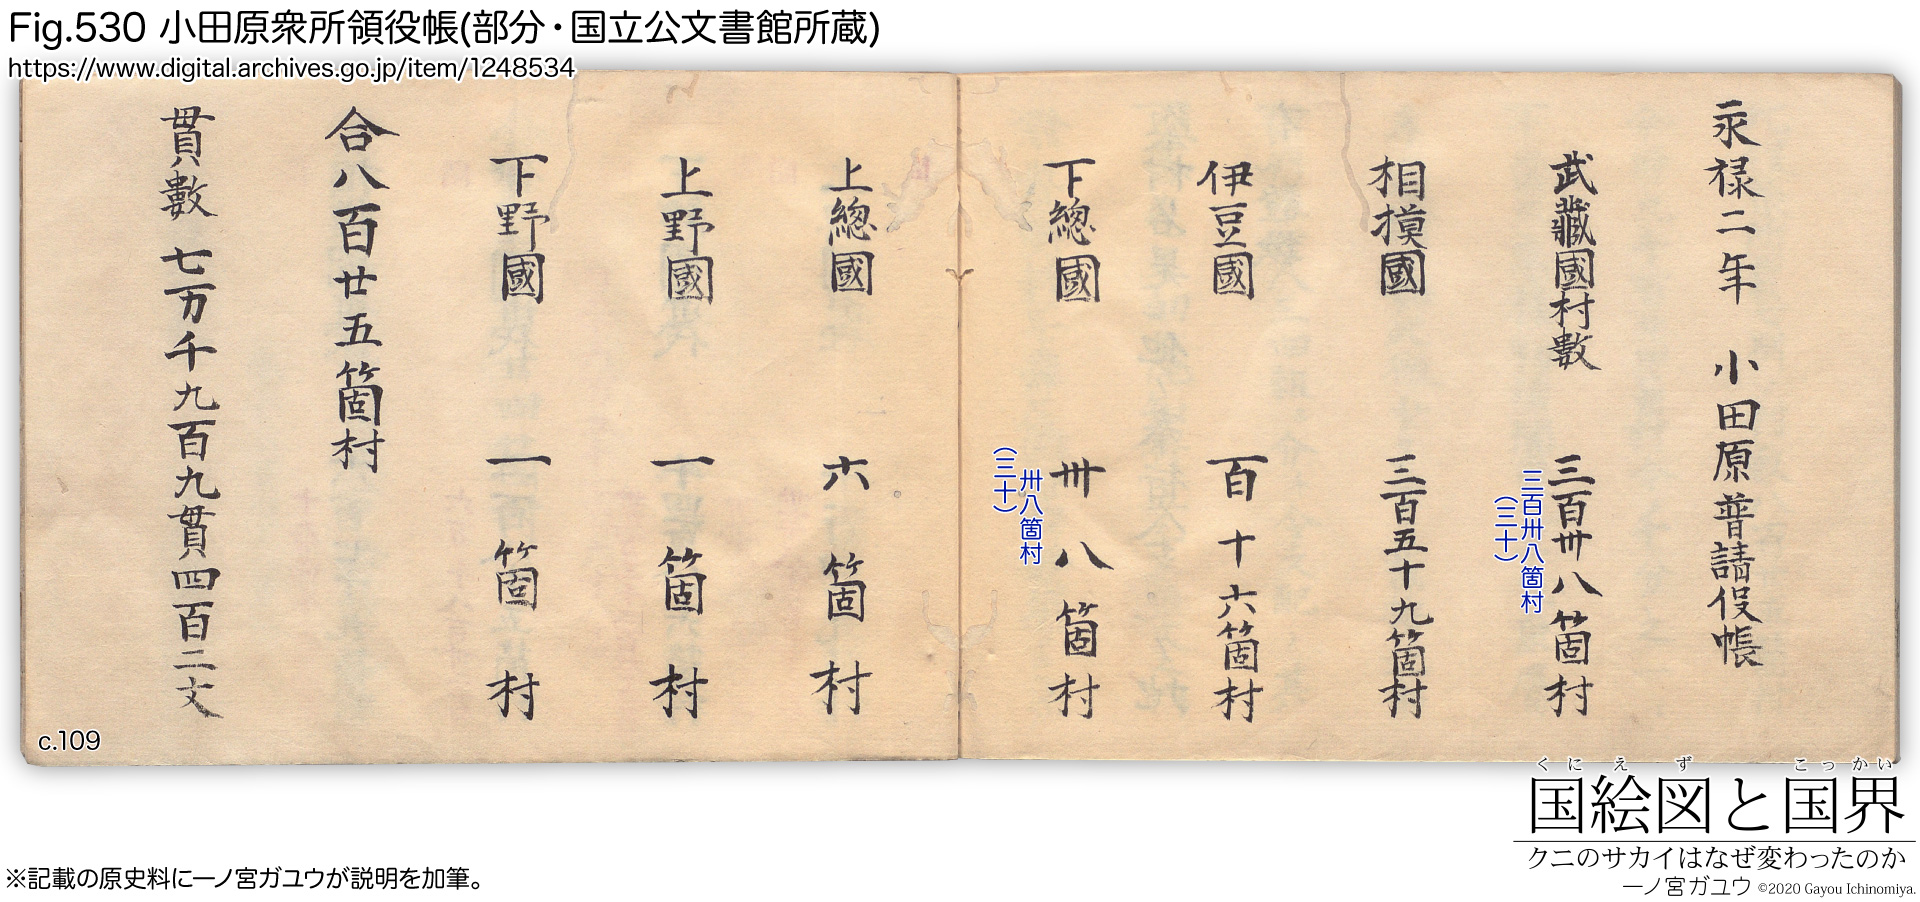 Fig.530 小田原衆所領役帳(部分・国立公文書館所蔵)
https://www.digital.archives.go.jp/item/1248534
永禄二年 小田原普請役帳
武藏國村數 三百卅八箇村
三百卅八箇村
(三十)
相摸國 三百五十九箇村
伊豆國 百十六箇村
下總國 卅八箇村
卅八箇村
(三十)
上總國 六箇村
上野國 一箇村
下野國 一箇村
合八百廿五箇村
貫數 七万千九百九貫四百二文
c.109
くにえず こっかい
国絵図と国界
クニのサカイはなぜ変わったのか
一ノ宮ガユウ ©2020 Gayou Ichinomiya.
※記載の原史料に一ノ宮ガユウが説明を加筆。